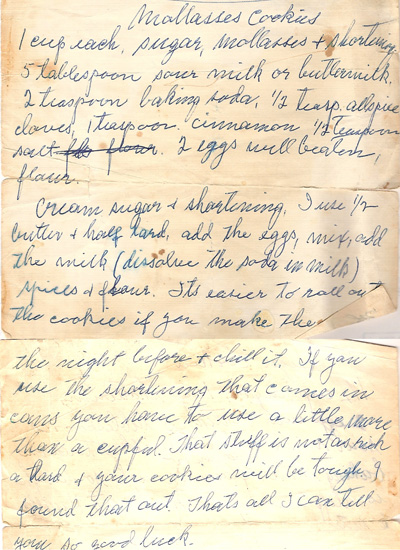 Mollasses Cookies
1 cup each, sugar, mollasses + shortening
5 tablespoon sour milk or buttermilk,
2 teaspoon baking soda, 1/2 teasp. allspice
cloves, 1 teaspoon cinnamon, 1/2 teaspoon
salt flour. 2 eggs well beaten,
flour.
Cream sugar + shortening, I use 1/2
butter + half lard, add the eggs, mix, add
the milk (dissolve the soda in milk)
spices + flour. Its easier to roll out
the cookies if you make the
the night before + chill it. If you
use the shortening that comes in
cans you have to use a little more
than a cupful. That stuff is not as rich
as lard + your cookies will be tough I
found that out. Thats all I can tell
you so good luck.